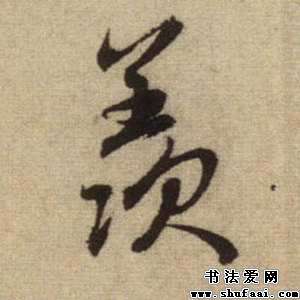 羨
书法爱网
www.shufaai.com